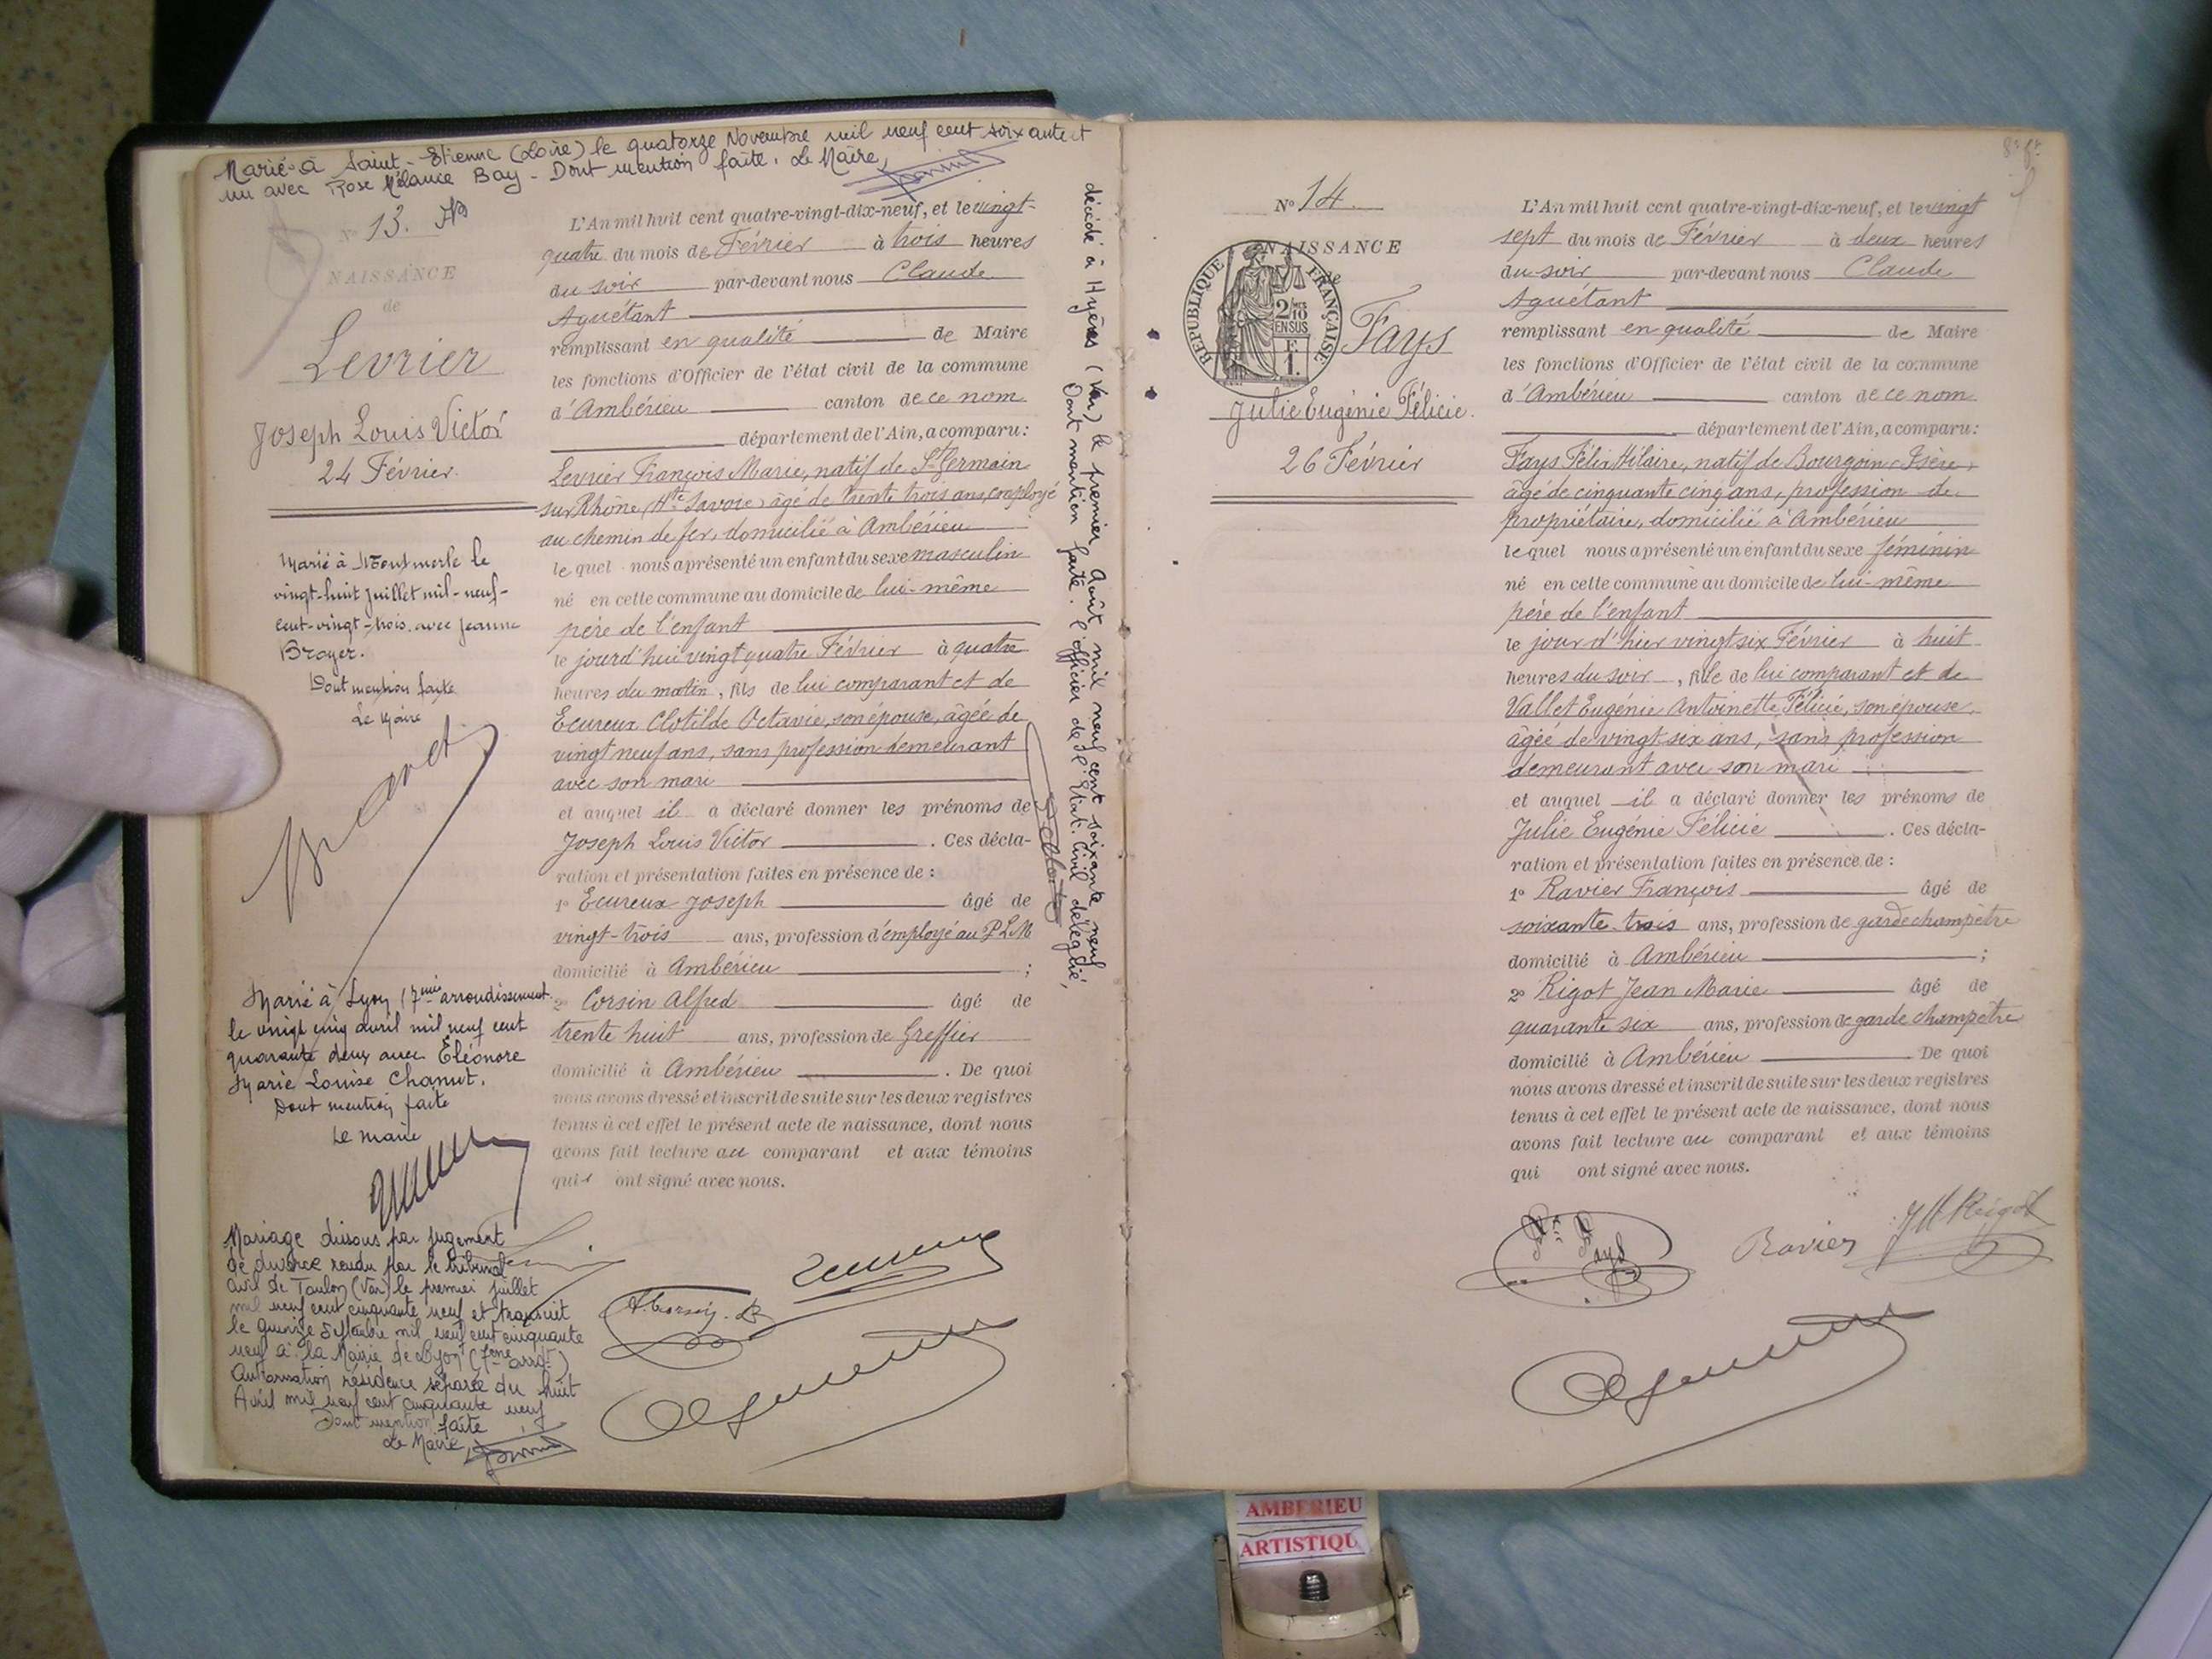 Marié à Saint-Etienne (Loire) le quatorze Novembre mil neuf cent soixante et
un avec Rose Mélanie Bay - Dont mention faite. Le Maire,
N° 13.
NAISSANCE
de
Levrier
Joseph Louis Victor
24 Février.
Marié à Montmerle le
vingt-huit juillet mil-neuf-
cent-vingt-trois avec Jeanne
Broyer.
Dont mention faite
Le Maire
Marié à Lyon (7ème arrondissement
le vingt cinq avril mil neuf cent
quarante deux avec Eléonore
Marie Louise Chanut.
Dont mention faite
Le maire
Mariage dissous par jugement
de divorce rendu par le tribunal
civil de Toulon (Var) le premier juillet
mil neuf cent cinquante neuf et transcrit
le quinze Septembre mil neuf cent cinquante
neuf à la Mairie de Lyon (7ème arrdt)
Autorisation résidence séparée du huit
Avril mil neuf cent cinquante neuf
Dont mention faite
Le Maire,
L'An mil huit cent quatre-vingt-dix-neuf, et le vingt-
quatre du mois de Février à trois heures
du soir par-devant nous Claude
Aguétant
remplissant en qualité de Maire
les fonctions d'Officier de l'état civil de la commune
d'Ambérieu canton de ce nom
département de l'Ain, a comparu:
Levrier François Marie, natif de St Germain
sur Rhône (Hte Savoie) âgé de trente trois ans, employé
au chemin de fer, domicilié à Ambérieu
le quel nous a présenté un enfant du sexe masculin
né en cette commune au domicile de lui-même
père de l'enfant
le jourd'hui vingt quatre Février à quatre
heures du matin, fils de lui comparant et de
Ecureux Clotilde Octavie, son épouse, âgée de
vingt neuf ans, sans profession demeurant
avec son mari
et auquel il a déclaré donner les prénoms de
Joseph Louis Victor. Ces décla-
ration et présentation faites en présence de :
1° Ecureux Joseph âgé de
vingt-trois ans, profession d'employé au P.L.M
domicilié à Ambérieu ;
2° Corsin Alfred âgé de
trente huit ans, profession de Greffier
domicilié à Ambérieu. De quoi
nous avons dressé et inscrit de suite sur les deux registres
tenus à cet effet le présent acte de naissance, dont nous
avons fait lecture au comparant et aux témoins
qui ont signé avec nous.
décédé à Hyères (Var) le premier Août mil neuf cent soixante neuf
Dont mention faite. L'officier de l'Etat-Civil délégué,
N° 14.
NAISSANCE
de
REPUBLIQUE FRANÇAISE
2/10
EN SUS
F.
1.
Fays
Julie Eugénie Félicie.
26 Février
L'An mil huit cent quatre-vingt-dix-neuf, et le vingt
sept du mois de Février à deux heures
du soir par-devant nous Claude
Aguétant
remplissant en qualité de Maire
les fonctions d'Officier de l'état civil de la commune
d'Ambérieu canton de ce nom
département de l'Ain, a comparu:
Fays Félix Hilaire, natif de Bourgoin Isère,
âgé de cinquante cinq ans, profession de
propriétaire, domicilié à Ambérieu
lequel nous a présenté un enfant du sexe féminin
né en cette commune au domicile de lui-même
père de l'enfant
le jour d'hier vingt six Février à huit
heures du soir, fille de lui comparant et de
Vallet Eugénie Antoinette Félicie, son épouse,
âgée de vingt six ans, sans profession
demeurant avec son mari
et auquel il a déclaré donner les prénoms de
Julie Eugénie Félicie. Ces décla-
ration et présentation faites en présence de :
1° Ravier François âgé de
soixante trois ans, profession de garde champêtre
domicilié à Ambérieu ;
2° Rigot Jean Marie âgé de
quarante six ans, profession de garde champêtre
domicilié à Ambérieu De quoi
nous avons dressé et inscrit de suite sur les deux registres
tenus à cet effet le présent acte de naissance, dont nous
avons fait lecture au comparant et aux témoins
qui ont signé avec nous.
Fays
Ravier
JM Rigot
AMBERIEU
ARTISTIQU